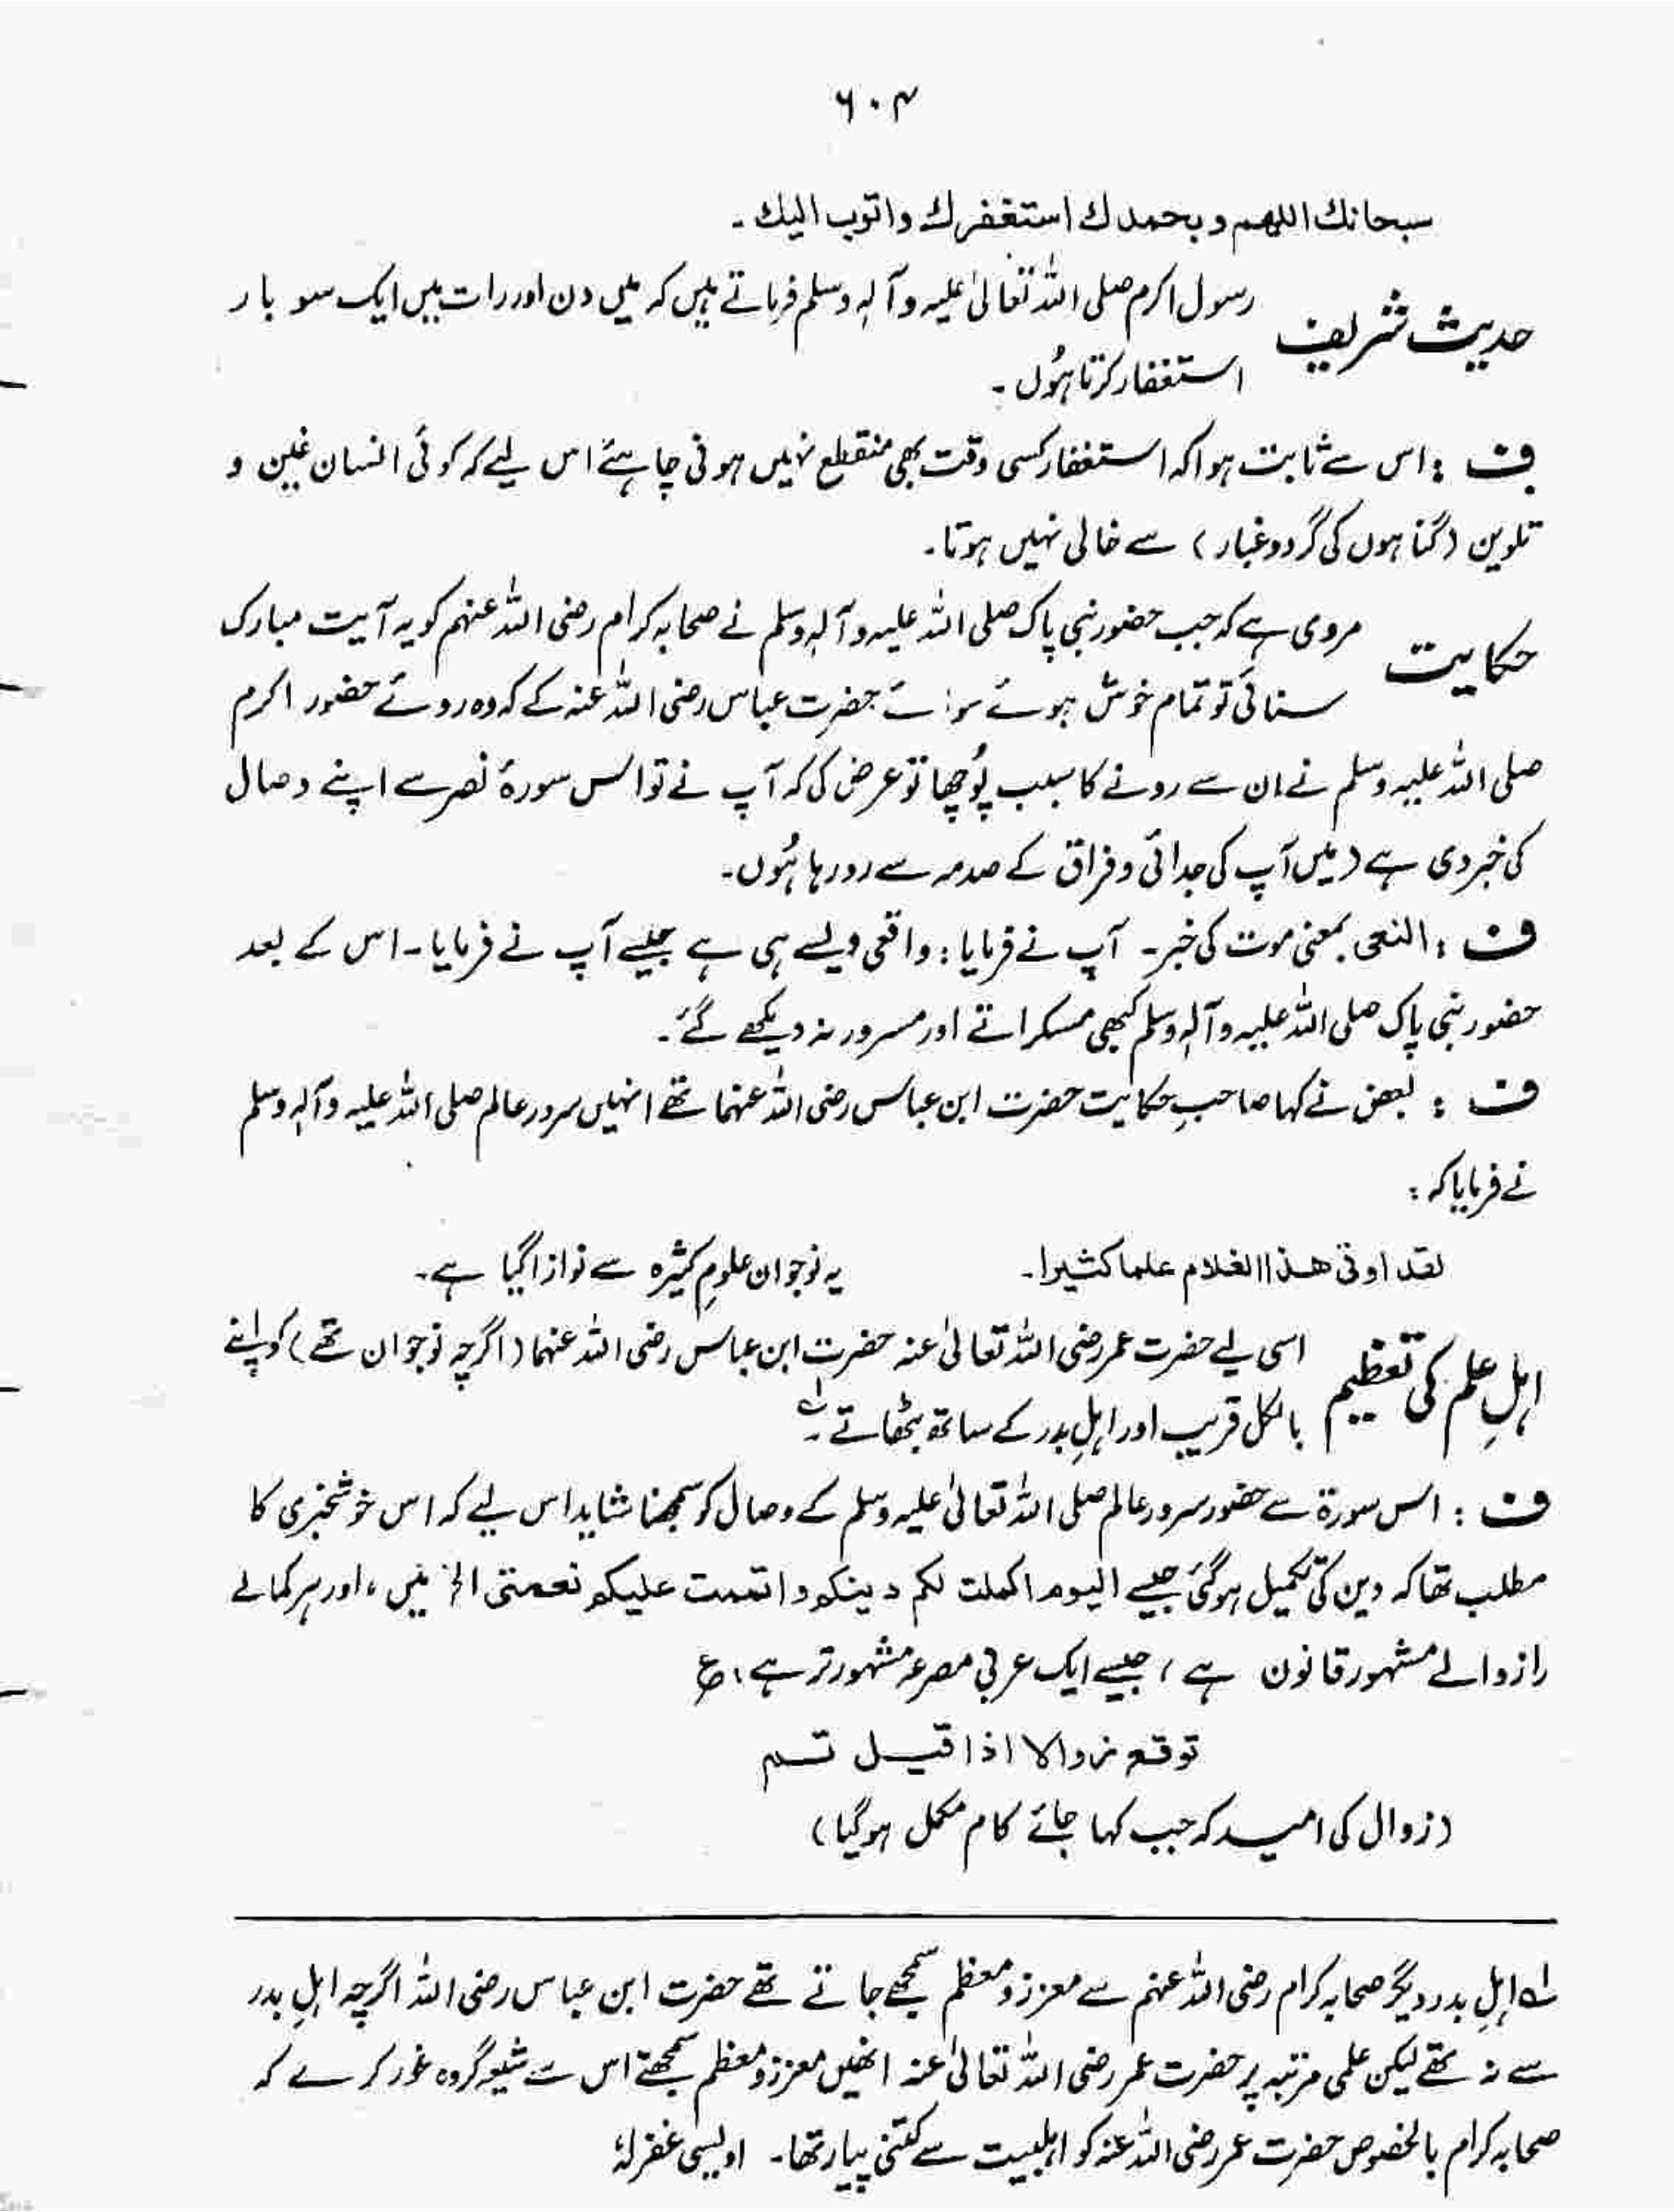 ۶۰۴
سبحانك اللهم وبحمدك استغفرك واتوب اليك۔
حدیث شریف رسول اکرم صلی اللہ تعالیٰ علیہ وآلہٖ وسلم فرماتے ہیں کہ میں دن اور رات میں ایک سو بار
استغفار کرتا ہُوں۔
ف : اس سے ثابت ہوا کہ استغفار کسی وقت بھی منقطع نہیں ہونی چاہئے اس لیے کہ کوئی انسان غین و
تلوین (گناہوں کی گرد وغبار) سے خالی نہیں ہوتا۔
حکایت مروی ہے کہ جب حضور نبی پاک صلی اللہ علیہ وآلہٖ وسلم نے صحابہ کرام رضی اللہ عنہم کو یہ آیت مبارک
سنائی تو تمام خوش ہوئے سوائے حضرت عباس رضی اللہ عنہ کے کہ وہ روئے حضور اکرم
صلی اللہ علیہ وسلم نے ان سے رونے کا سبب پُوچھا تو عرض کی کہ آپ نے تو اس سورۂ نصر سے اپنے وصال
کی خبر دی ہے (میں آپ کی جدائی و فراق کے صدمہ سے رو رہا ہُوں۔
ف : النعی بمعنی موت کی خبر۔ آپ نے فرمایا : واقعی ویسے ہی ہے جیسے آپ نے فرمایا۔ اس کے بعد
حضور نبی پاک صلی اللہ علیہ وآلہٖ وسلم کبھی مسکراتے اور مسرور نہ دیکھے گئے۔
ف : بعض نے کہا صاحبِ حکایت حضرت ابن عباس رضی اللہ عنہما تھے انہیں سرور عالم صلی اللہ علیہ وآلہٖ وسلم
نے فرمایا کہ :
لقد اوتی هذا الغلام علما كثيرا۔ یہ نوجوان علومِ کثیرہ سے نوازا گیا ہے۔
اہلِ علم کی تعظیم اسی لیے حضرت عمر رضی اللہ تعالیٰ عنہ حضرت ابن عباس رضی اللہ عنہما (اگرچہ نوجوان تھے) کو اپنے
بالکل قریب اور اہلِ بدر کے ساتھ بٹھاتے۔ لہ
ف : اس سورۃ سے حضور سرور عالم صلی اللہ تعالیٰ علیہ وسلم کے وصال کو سمجھنا شاید اس لیے کہ اس خوشخبری کا
مطلب تھا کہ دین کی تکمیل ہوگئی جیسے اليوم اكملت لكم دينكم واتممت عليكم نعمتی الخ میں، اور ہر کمالے
را زوالے مشہور قانون ہے، جیسے ایک عربی مصرعہ مشہور تر ہے، ع
توقع زوالا اذا قيل تم
(زوال کی امید کر جب کہا جائے کام مکمل ہوگیا)
لہ اہلِ بدر دیگر صحابہ کرام رضی اللہ عنہم سے معزز و معظم سمجھے جاتے تھے حضرت ابن عباس رضی اللہ اگرچہ اہلِ بدر
سے نہ تھے لیکن علمی مرتبہ پر حضرت عمر رضی اللہ تعالیٰ عنہ انھیں معزز و معظم سمجھتے اس سے شیعہ گروہ غور کرے کہ
صحابہ کرام بالخصوص حضرت عمر رضی اللہ عنہ کو اہلبیت سے کتنی پیار تھا۔ اویسی غفرلہٗ